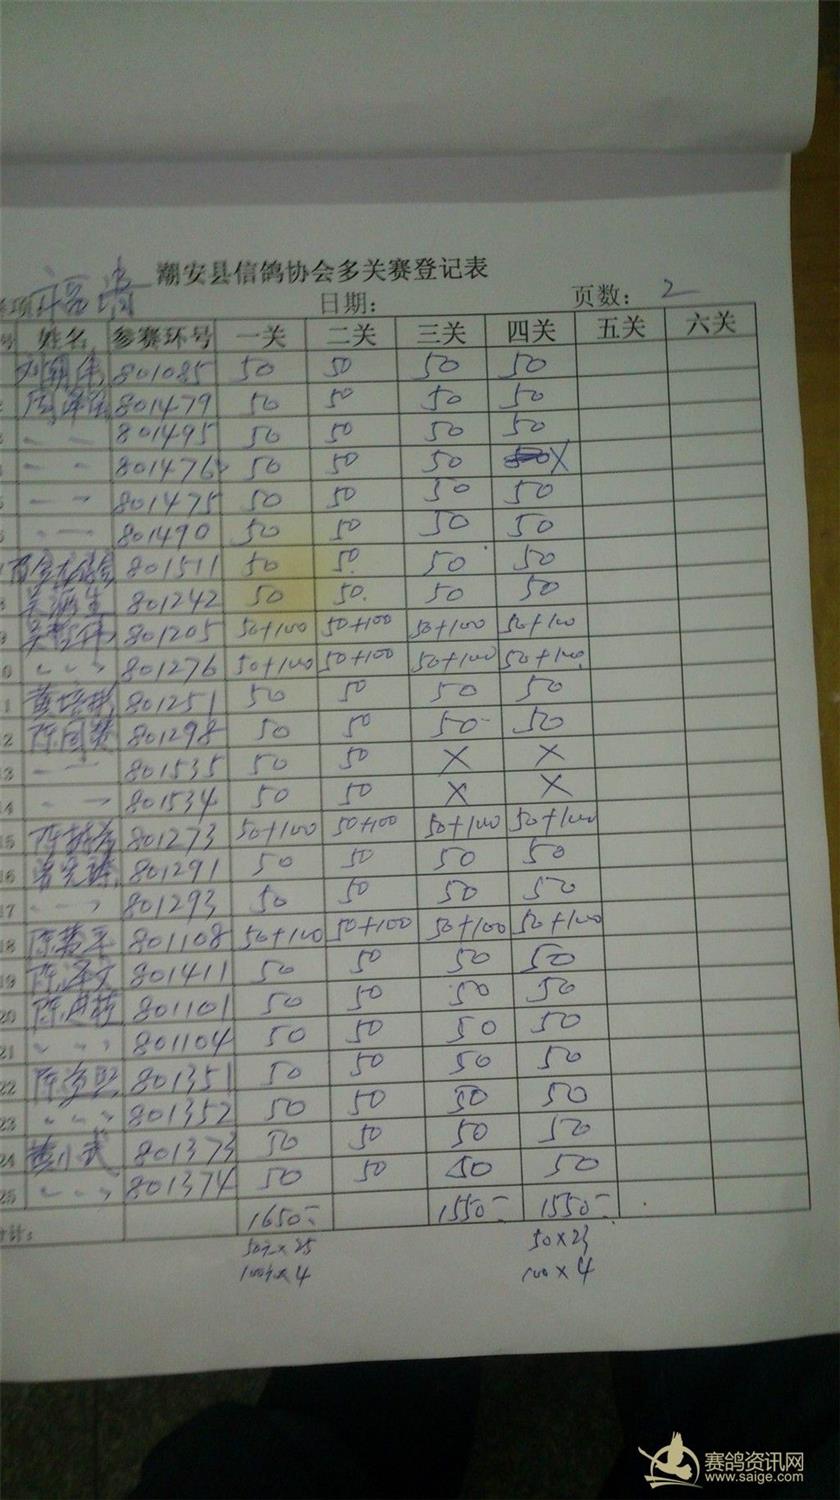 潮安县信鸽协会多关赛登记表
福清
日期： 页数：2
号 姓名 参赛环号 一关 二关 三关 四关 五关 六关
801085 50 50 50 50
801479 50 50 50 50
801495 50 50 50 50
801476 50 50 50 X
801475 50 50 50 50
801490 50 50 50 50
801511 50 50 50 50
801242 50 50 50 50
9 801205 50+100 50+100 50+100 50+100
0 801276 50+100 50+100 50+100 50+100
1 黄培彬 801251 50 50 50 50
12 801298 50 50 50 50
13 801535 50 50 X X
14 801534 50 50 X X
15 801273 50+100 50+100 50+100 50+100
16 801291 50 50 50 50
17 801293 50 50 50 50
18 801108 50+100 50+100 50+100 50+100
19 陈泽文 801411 50 50 50 50
20 801101 50 50 50 50
21 801104 50 50 50 50
22 801351 50 50 50 50
23 801352 50 50 50 50
24 黄小武 801373 50 50 50 50
25 801374 50 50 50 50
计： 1650 1550 1550
50元×25 50×23
100元×4 100×4
赛鸽资讯网
www.saige.com